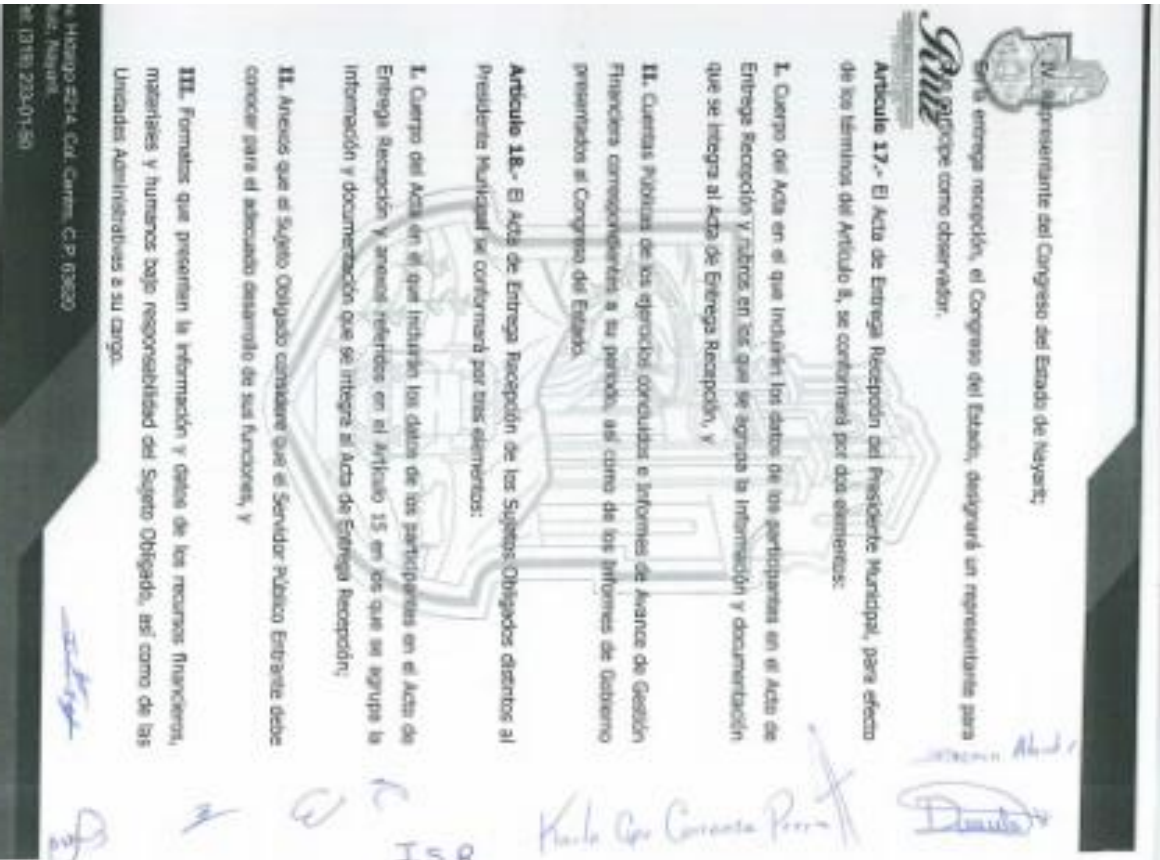 IV. Representante del Congreso del Estado de Nayarit;
En la entrega recepción, el Congreso del Estado, designará un representante para
que participe como observador.
Ruiz
Artículo 17.- El Acta de Entrega Recepción del Presidente Municipal, para efecto
de los términos del Artículo 8, se conformará por dos elementos:
I. Cuerpo del Acta en el que incluirán los datos de los participantes en el Acto de
Entrega Recepción y rubros en los que se agrupa la información y documentación
que se integra al Acta de Entrega Recepción, y
II. Cuentas Públicas de los ejercicios concluidos e Informes de Avance de Gestión
Financiera correspondientes a su periodo, así como de los Informes de Gobierno
presentados al Congreso del Estado.
Artículo 18.- El Acta de Entrega Recepción de los Sujetos Obligados distintos al
Presidente Municipal se conformará por tres elementos:
I. Cuerpo del Acta en el que incluirán los datos de los participantes en el Acto de
Entrega Recepción y anexos referidos en el Artículo 15 en los que se agrupa la
información y documentación que se integra al Acta de Entrega Recepción;
II. Anexos que el Sujeto Obligado considere que el Servidor Público Entrante debe
conocer para el adecuado desarrollo de sus funciones, y
III. Formatos que presenten la información y datos de los recursos financieros,
materiales y humanos bajo responsabilidad del Sujeto Obligado, así como de las
Unidades Administrativas a su cargo.
Hidalgo #214. Col. Centro, C.P. 63620
Ruiz, Nayarit.
Tel: (319) 233-01-50
Karla